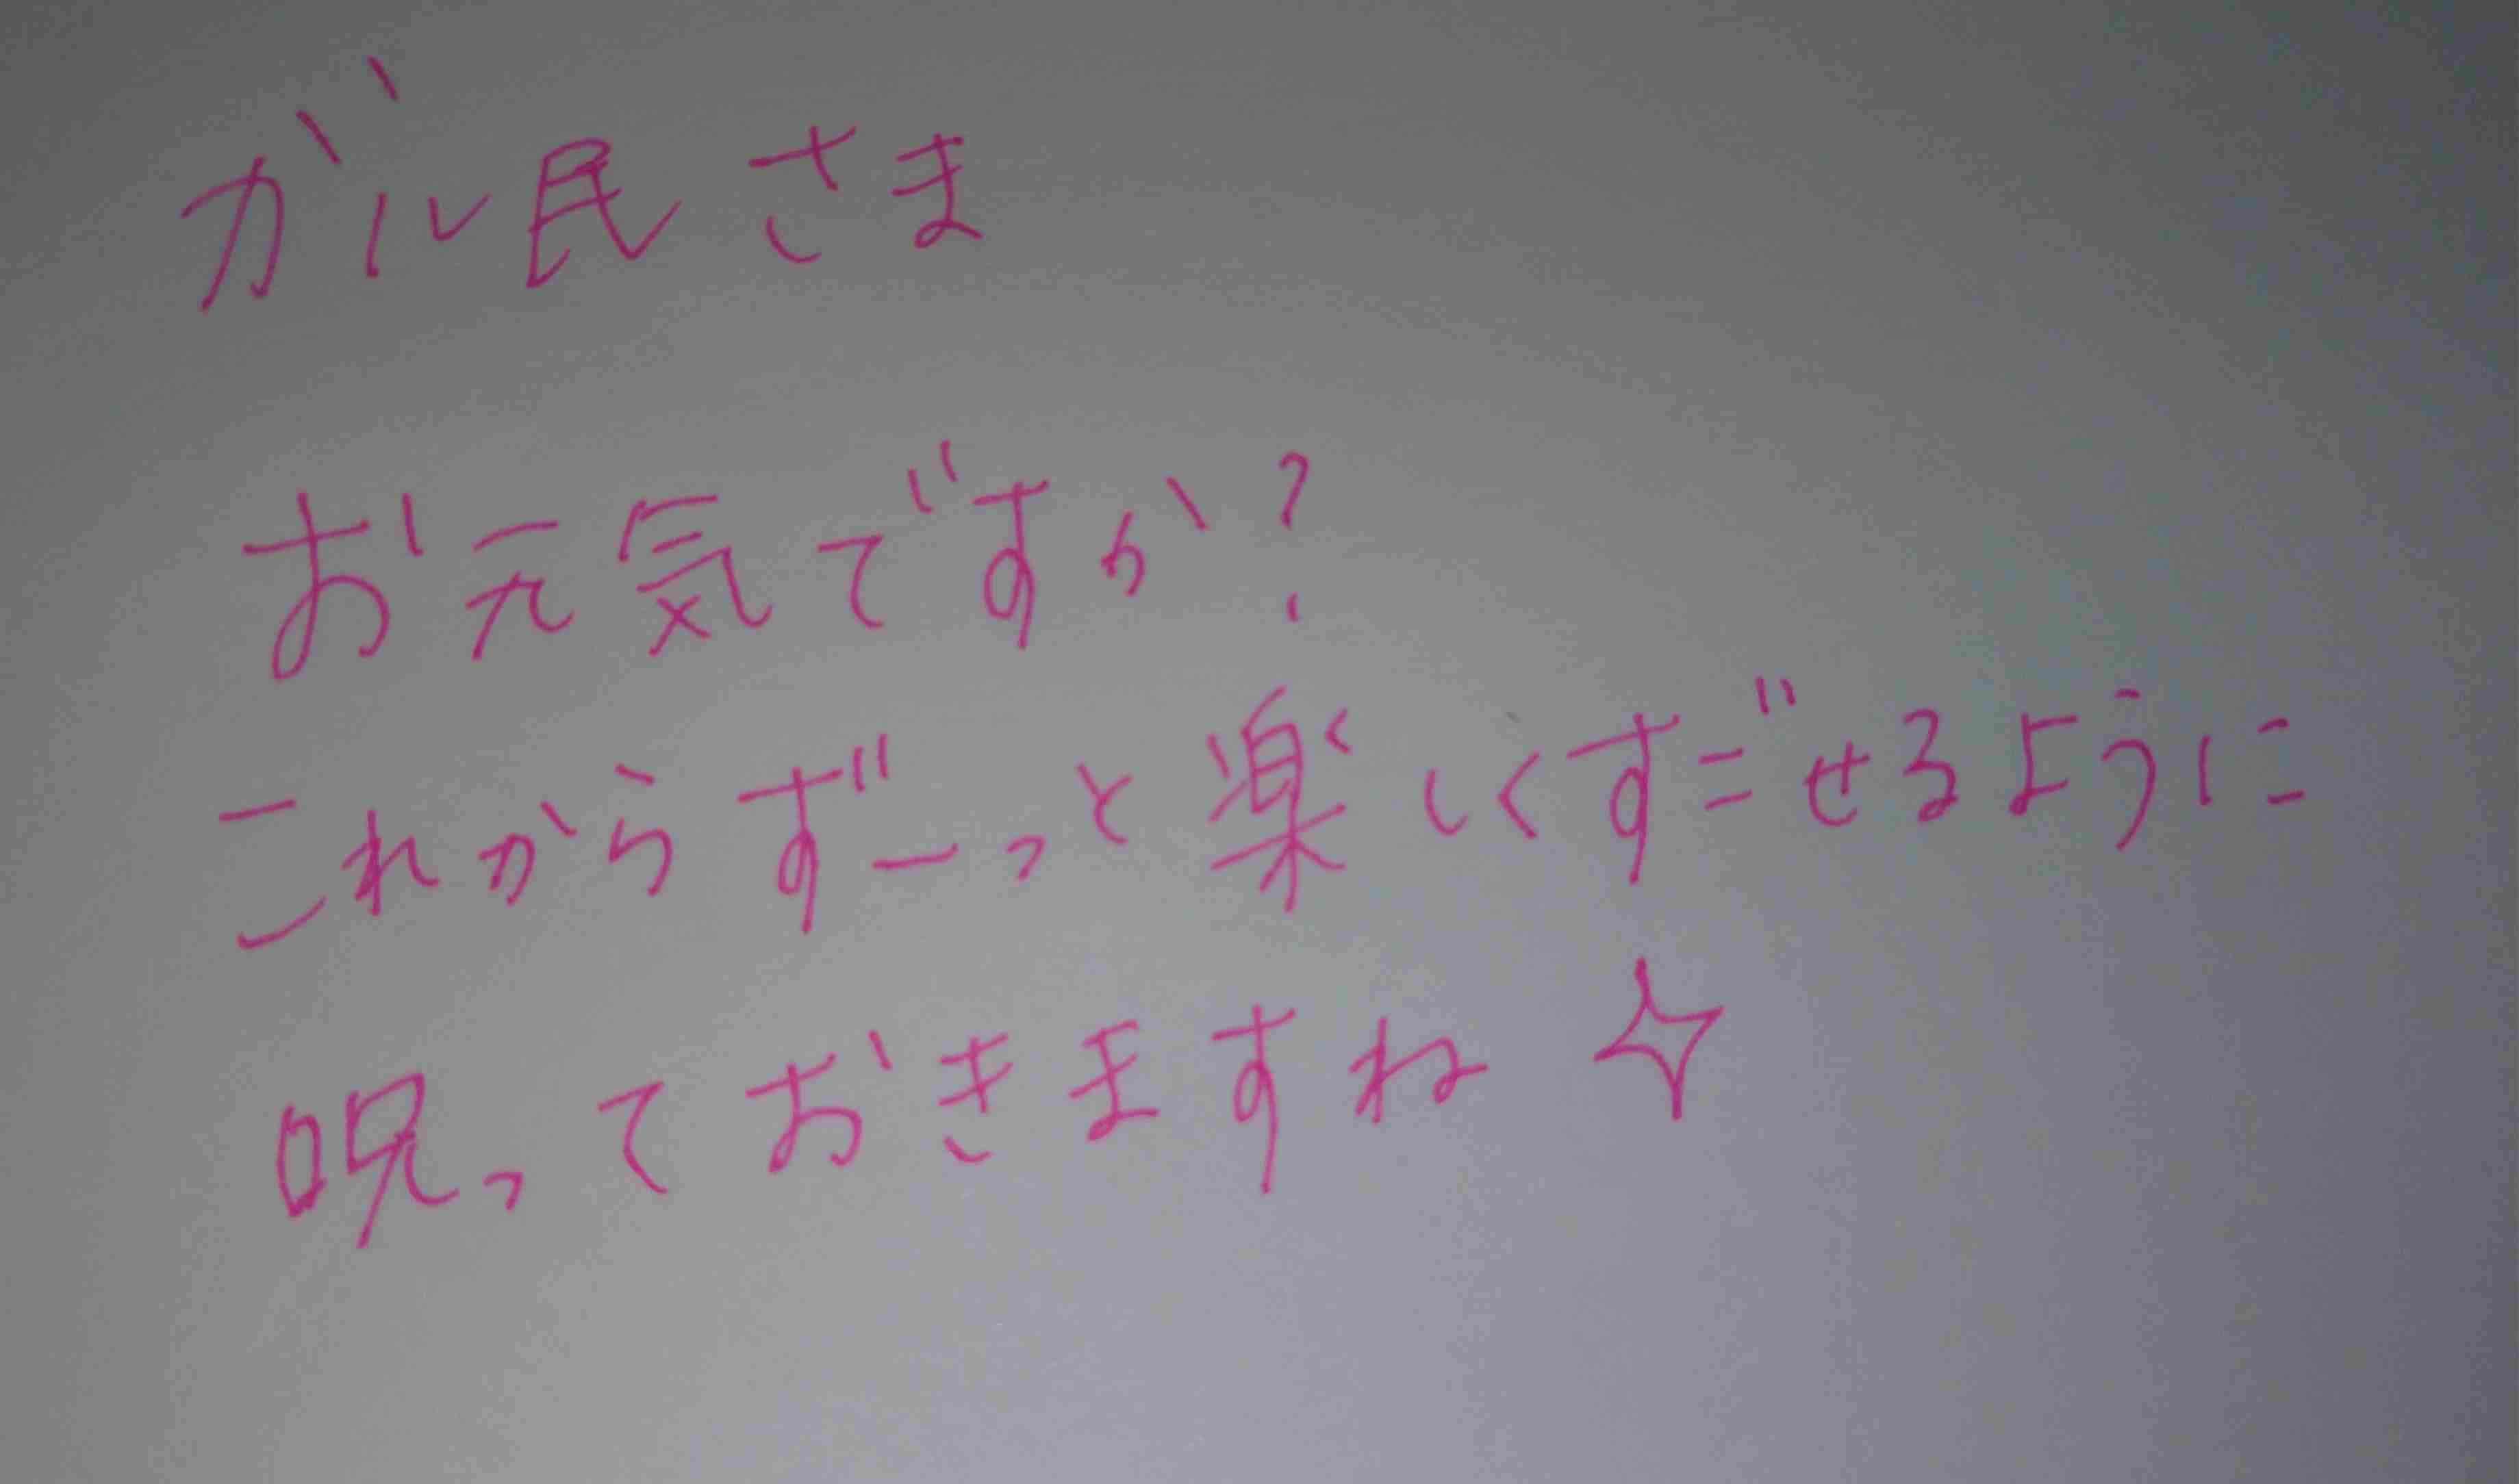 ガル民さま
お元気ですか?
これからずーっと楽しくすごせるように
呪っておきますね✧